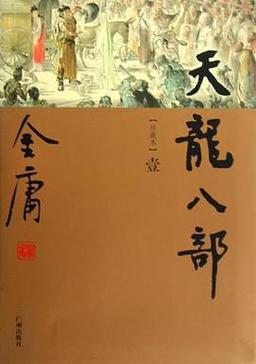 天龍八部
【珍藏本】
壹
金庸
广州出版社